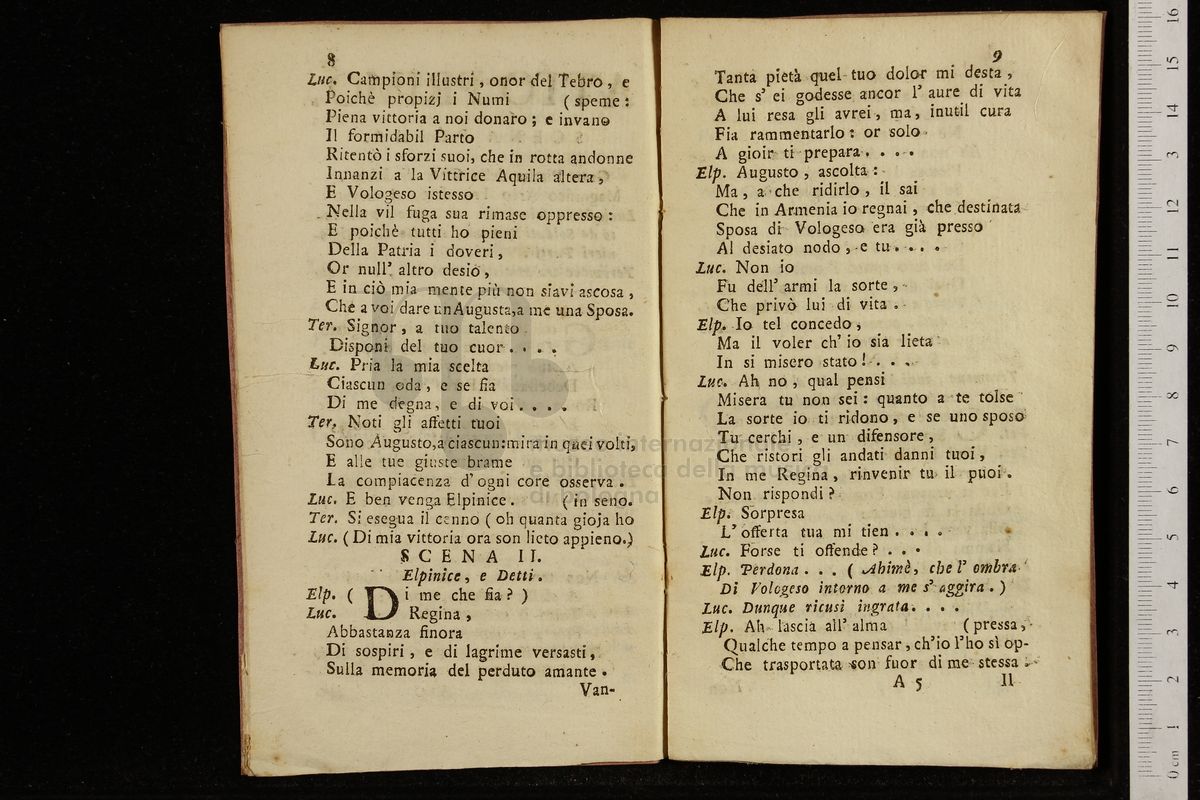 8
Luc. Campioni illustri, onor del Tebro, e
Poichè propizj i Numi (speme:
Piena vittoria a noi donaro; e invano
Il formidabil Parto
Ritentò i sforzi suoi, che in rotta andonne
Innanzi a la Vittrice Aquila altera,
E Vologeso istesso
Nella vil fuga sua rimase oppresso:
E poichè tutti ho pieni
Della Patria i doveri,
Or null' altro desio,
E in ciò mia mente più non siavi ascosa,
Che a voi dare un Augusta, a me una Sposa.
Ter. Signor, a tuo talento
Disponi del tuo cuor....
Luc. Pria la mia scelta
Ciascun oda, e se fia
Di me degna, e di voi....
Ter. Noti gli affetti tuoi
Sono Augusto, a ciascun: mira in quei volti,
E alle tue giuste brame
La compiacenza d' ogni core osserva.
Luc. E ben venga Elpinice. (in seno.
Ter. Si esegua il cenno (oh quanta gioja ho
Luc. (Di mia vittoria ora son lieto appieno.)
SCENA II.
Elpinice, e Detti.
Elp. (Di me che fia?)
Luc. Regina,
Abbastanza finora
Di sospiri, e di lagrime versasti,
Sulla memoria del perduto amante.
Van-
9
Tanta pietà quel tuo dolor mi desta,
Che s' ei godesse ancor l' aure di vita
A lui resa gli avrei, ma, inutil cura
Fia rammentarlo: or solo
A gioir ti prepara....
Elp. Augusto, ascolta:
Ma, a che ridirlo, il sai
Che in Armenia io regnai, che destinata
Sposa di Vologeso era già presso
Al desiato nodo, e tu....
Luc. Non io
Fu dell' armi la sorte,
Che privò lui di vita.
Elp. Io tel concedo,
Ma il voler ch' io sia lieta
In sì misero stato!...
Luc. Ah no, qual pensi
Misera tu non sei: quanto a te tolse
La sorte io ti ridono, e se uno sposo
Tu cerchi, e un difensore,
Che ristori gli andati danni tuoi,
In me Regina, rinvenir tu il puoi.
Non rispondi?
Elp. Sorpresa
L' offerta tua mi tien....
Luc. Forse ti offende?...
Elp. Perdona... (Ahimè, che l' ombra
Di Vologeso intorno a me s' aggira.)
Luc. Dunque ricusi ingrata....
Elp. Ah lascia all' alma (pressa,
Qualche tempo a pensar, ch'io l'ho sì op-
Che trasportata son fuor di me stessa.
A 5 Il
museo internazionale
e biblioteca della musica
di bologna
0 cm 1 2 3 4 5 6 7 8 9 10 11 12 13 14 15 16